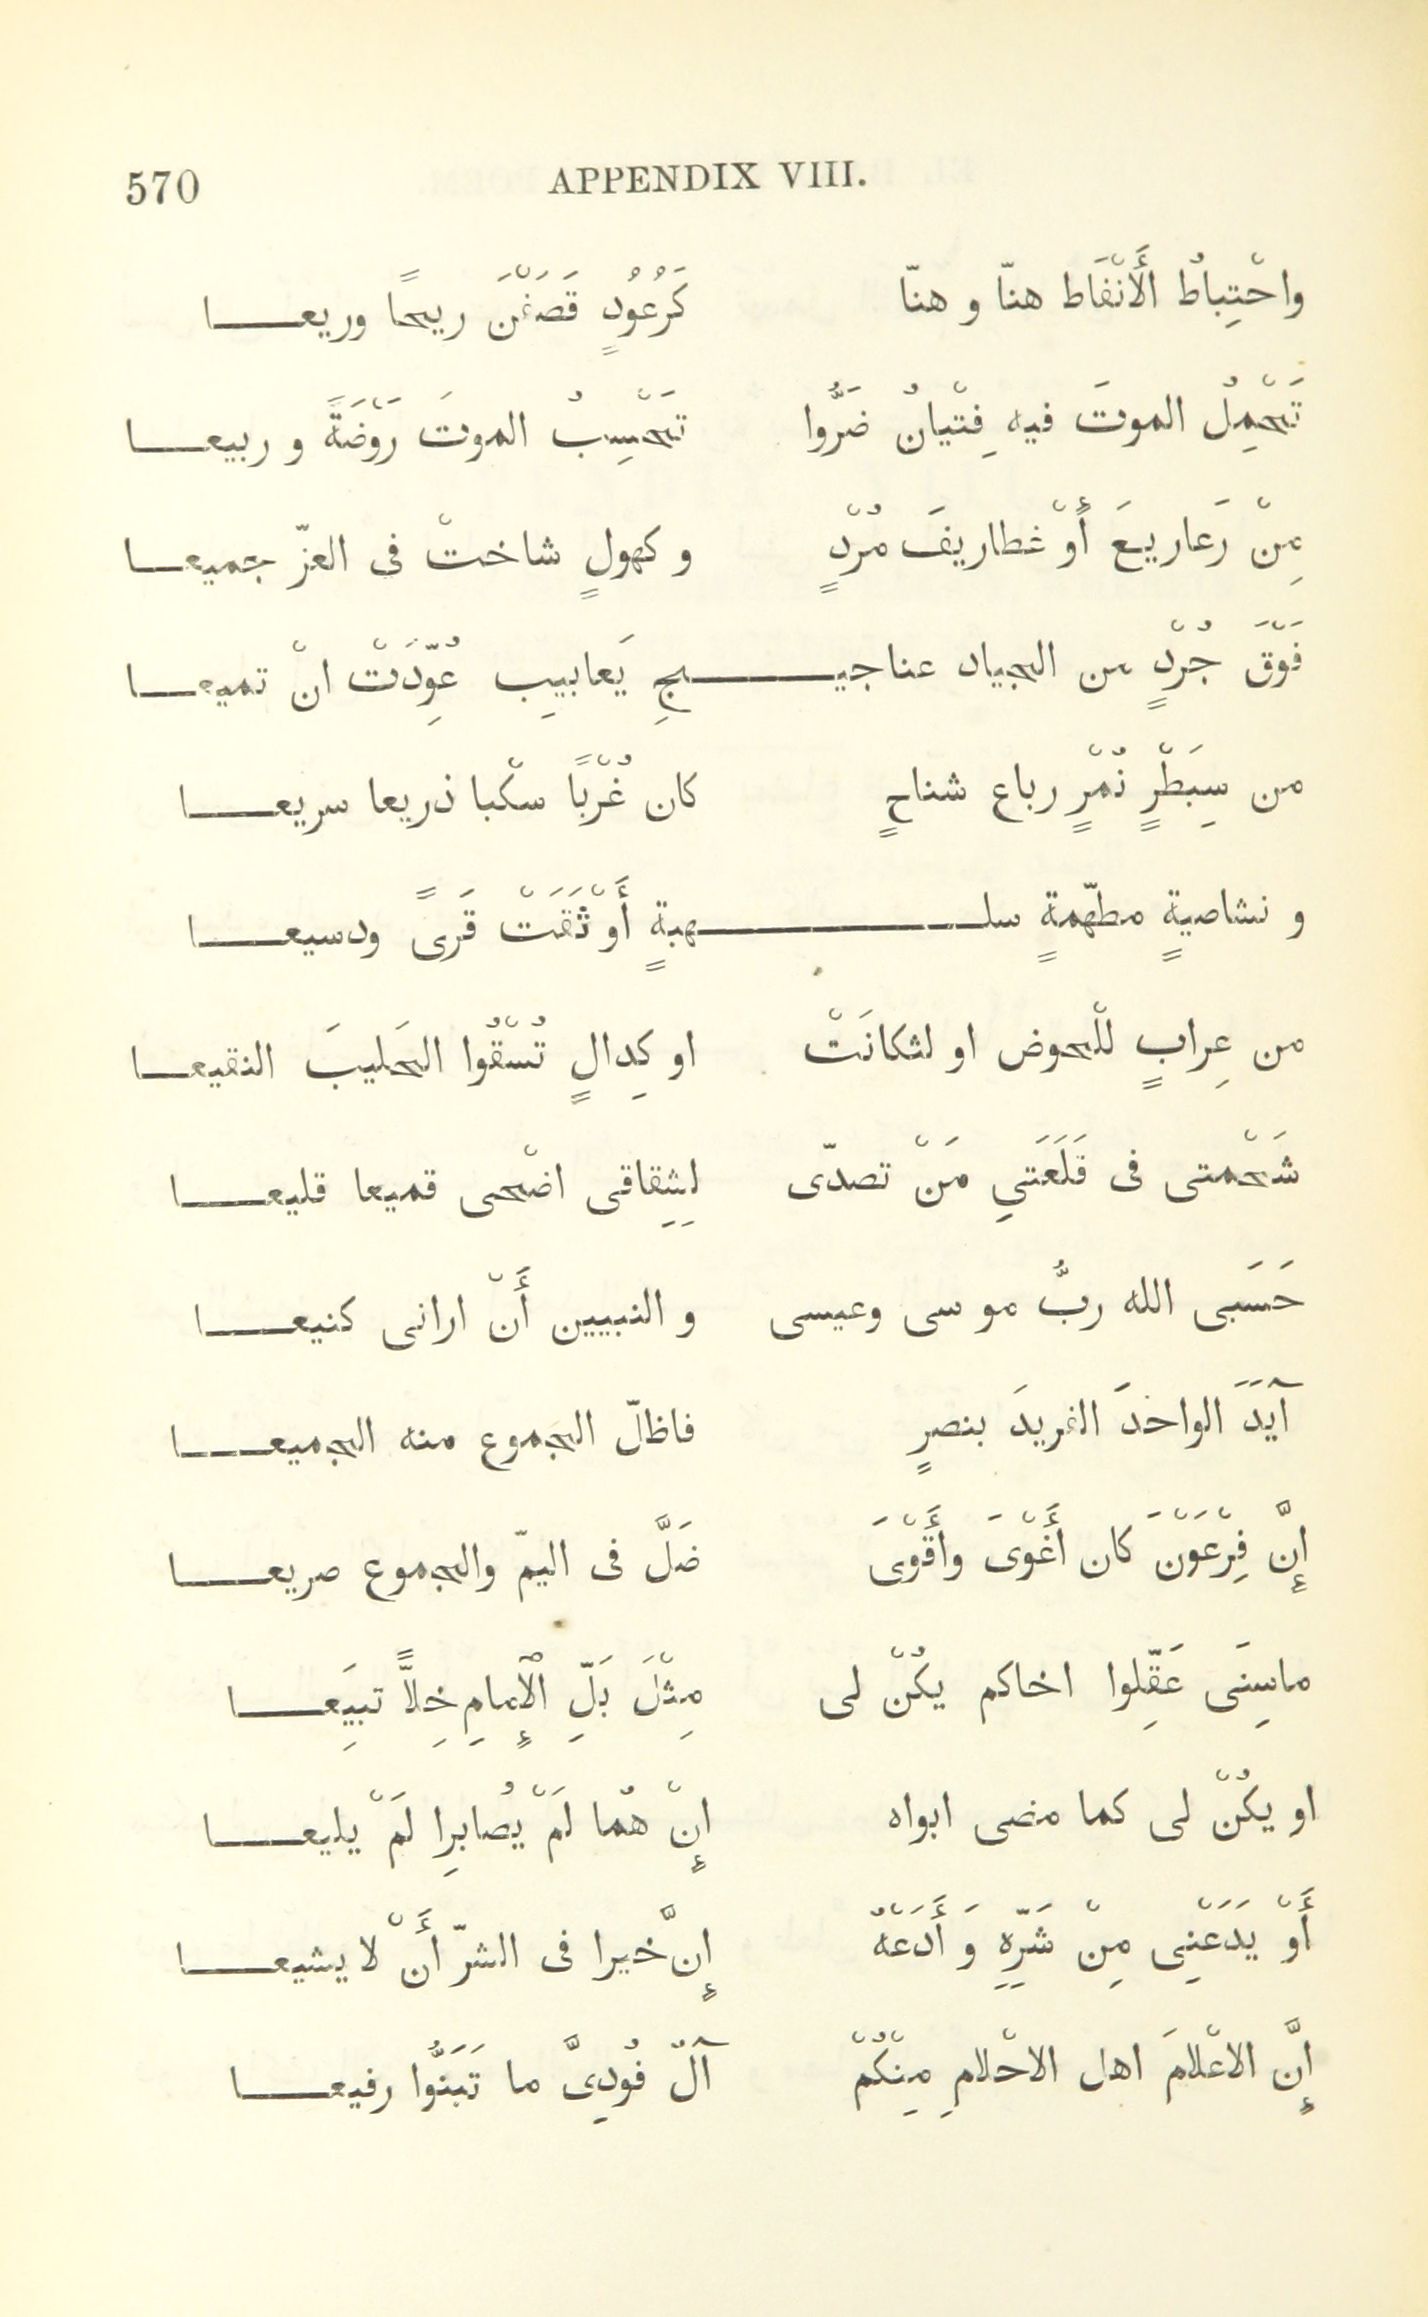 570 APPENDIX VIII.
واحْتِباطُ الأَنْفَاط هنّا و هنّا كَرُعُودٍ قَصَفْنَ ريحًا وريعـــا
تَحْمِلُ الموتَ فيه فِتْيانُ ضَرُّوا تَحْسِبُ الموتَ رَوْضَةً و ربيعـــا
مِنْ رَعاريعَ أَوْ غطاريفَ مُرْدٍ و كهولٍ شاختْ فى العزّ جميعـــا
فَوْقَ جُرْدٍ من الجياد عناجيـــجِ يَعابيبِ عُوِّدَتْ انْ تميعـــا
من سِبَطْرٍ نُمْرٍ رباع شناحٍ كان غُرْبًا سكْبا ذريعا سريعـــا
و نشاصيةٍ مطهّمةٍ سلـــهبةٍ أَوْثَقَتْ قَرَىً ودسيعـــا
من عِرابٍ للْحوض او لثكانَتْ او كِدالٍ تُسْقُوا الحَليبَ النقيعـــا
شَحْمتى فى قَلَعَتي مَنْ تصدّى لِثِقاقى اضْحى قميعا قليعـــا
حَسَبى الله ربُّ موسى وعيسى و النبيين أَنْ ارانى كنيعـــا
آيَدَ الواحدَ الفريدَ بنصرٍ فاظالّ الجموع منه الجميعـــا
إِنَّ فِرْعَوْنَ كان أَغْوىَ وأَقْوىَ ضَلَّ فى اليمّ والجموع صريعـــا
ماسِنَى عَقِّلوا اخاكم يكُنْ لى مِثْلَ بَلِّ الْإِمامِ خِلاًّ تبيَعـــا
او يكُنْ لى كما مضى ابواه إِنْ هُما لَمْ يُصابرِا لَمْ يليعـــا
أَوْ يَدَعْنِى مِنْ شَرِّهِ وَ أَدَعْهُ إِنَّ خيرا فى الشرّ أَنْ لا يشيعـــا
إِنَّ الاعْلامَ اهل الاحْلامِ مِنْكُمْ آلُ فُودِىَّ ما تَبَنَّوُا رفيعـــا